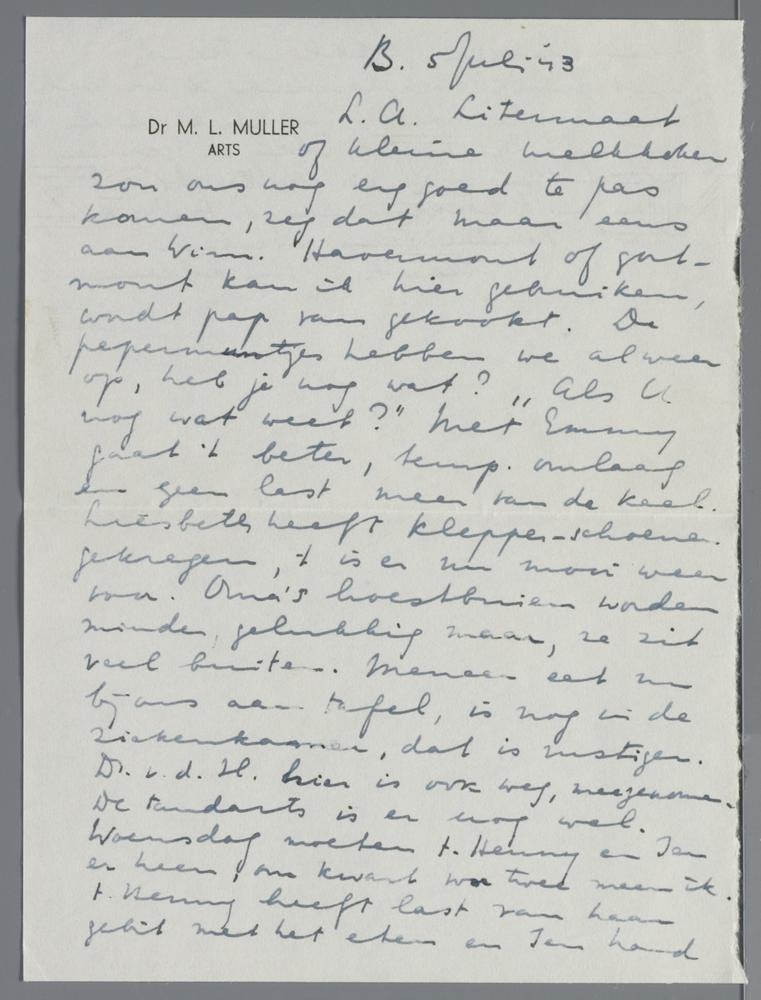 B. 5 Juli '43
Dr M. L. MULLER
ARTS
L. A. Litermaat
of kleine melkkoker
zou ons nog erg goed te pas
komen, zeg dat maar eens
aan Wim. Havermout of gort-
mout kan ik hier gebruiken,
wordt pap van gekookt. De
pepermuntjes hebben we alweer
op, heb je nog wat? "Als U
nog wat weet?" Met Emmy
gaat 't beter, temp. omlaag
en geen last meer van de keel.
Liesbeth heeft klepper-schoenen
gekregen, 't is er nu mooi weer
voor. Oma's hoestbuien worden
minder, gelukkig maar, ze zit
veel buiten. Meneer eet nu
bij ons aan tafel, is nog in de
ziekenkamer, dat is rustiger.
Dr. v. d. H. hier is ook weg, meegenomen.
De tandarts is er nog wel.
Woensdag moeten t. Henny en Jan
er heen, om kwart voor twee meen ik.
t. Henny heeft last van haar
gebit met het eten en Jan had